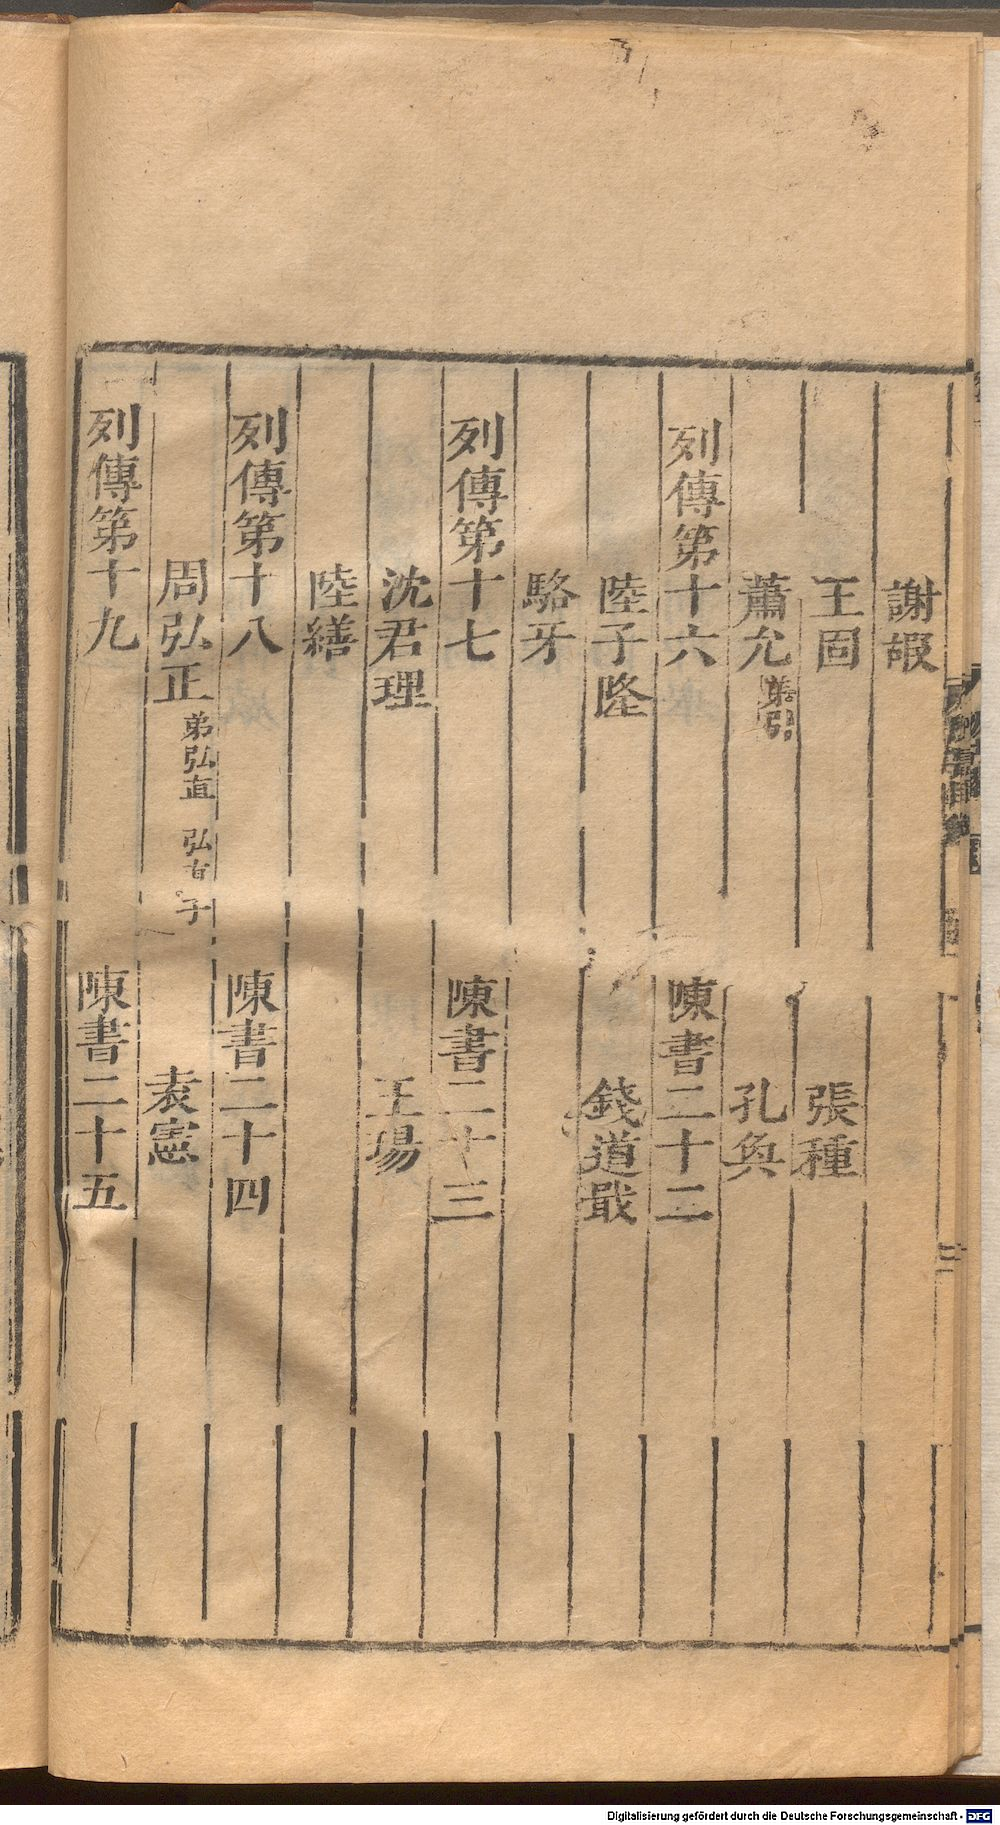 謝嘏
王固　張種
蕭允 弟引　孔奐
列傳第十六　陳書二十二
陸子隆　錢道戢
駱牙
列傳第十七　陳書二十三
沈君理　王瑒
陸繕
列傳第十八　陳書二十四
周弘正 弟弘直　弘直子　袁憲
列傳第十九　陳書二十五
Digitalisierung gefördert durch die Deutsche Forschungsgemeinschaft - DFG